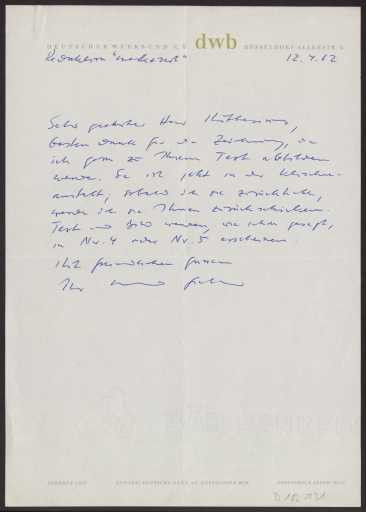 DEUTSCHER WERKBUND E.V. dwb DÜSSELDORF ALLEESTR.
Redaktion "werk und zeit" 12.4.62
Sehr geehrter Herr
besten Dank für die Zeichnung, die
ich gern zu Ihrem Text abbilden
werde. Sie ist jetzt in der Klischee-
anstalt; sobald ich sie zurückhabe,
werde ich sie Ihnen zurückschicken.
Text und Bild werden, wie schon gesagt,
in Nr. 4 oder Nr. 5 erscheinen.
Mit freundlichen Grüssen
Ihr
D 102 131